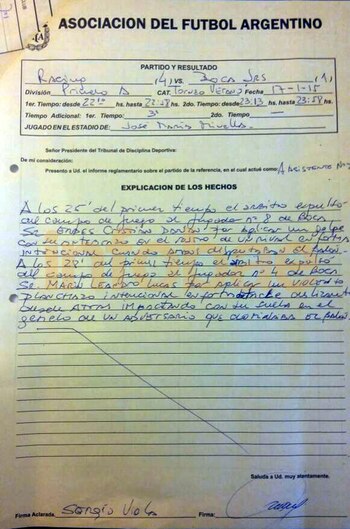 ASOCIACION DEL FUTBOL ARGENTINO
PARTIDO Y RESULTADO
Racing (4) VS. Boca Jrs (1)
División Primera A CAT. Torneo Verano Fecha 17-1-15
1er. Tiempo: desde 22:10 hs. hasta 22:58 hs. 2do. Tiempo: desde 23:13 hs. hasta 23:58 hs.
Tiempo Adicional: 1er. Tiempo: 3' 2do. Tiempo
JUGADO EN ESTADIO DE: José María Minella
Señor Presidente del Tribunal de Disciplina Deportiva:
De mi consideración:
Presento a Ud. el informe reglamentario sobre el partido de la referencia, en el cual actué como: Asistente Nº
EXPLICACION DE LOS HECHOS
A los 25' del primer tiempo el arbitro expulsó
del campo de juego al jugador nº 8 de Boca
Sr. Erbes Cristian Damián por aplicar un golpe
con su antebrazo en el rostro de un rival en forma
intencional cuando ambos disputaban el balón
A los 29' del primer tiempo el arbitro expulsó
del campo de juego al jugador nº 4 de Boca
Sr. Marín Leandro Lucas por aplicar un violento
planchazo intencional
desde atras impactando con su suela en el
gemelo de un adversario que dominaba el balón
Saluda a Ud. muy atentamente.
Firma Aclarada Sergio Viola Firma: